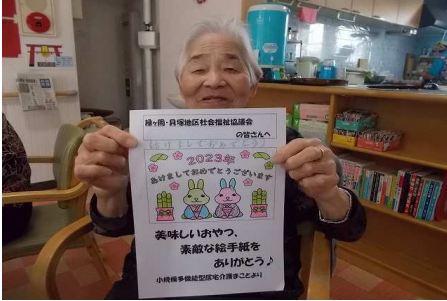 緑ヶ岡・貝塚地区社会福祉協議会
の皆さんへ
あけましておめでとう！
2023年
あけましておめでとうございます
美味しいおやつ、
素敵な絵手紙を
ありがとう♪
小規模多機能型居宅介護まことより